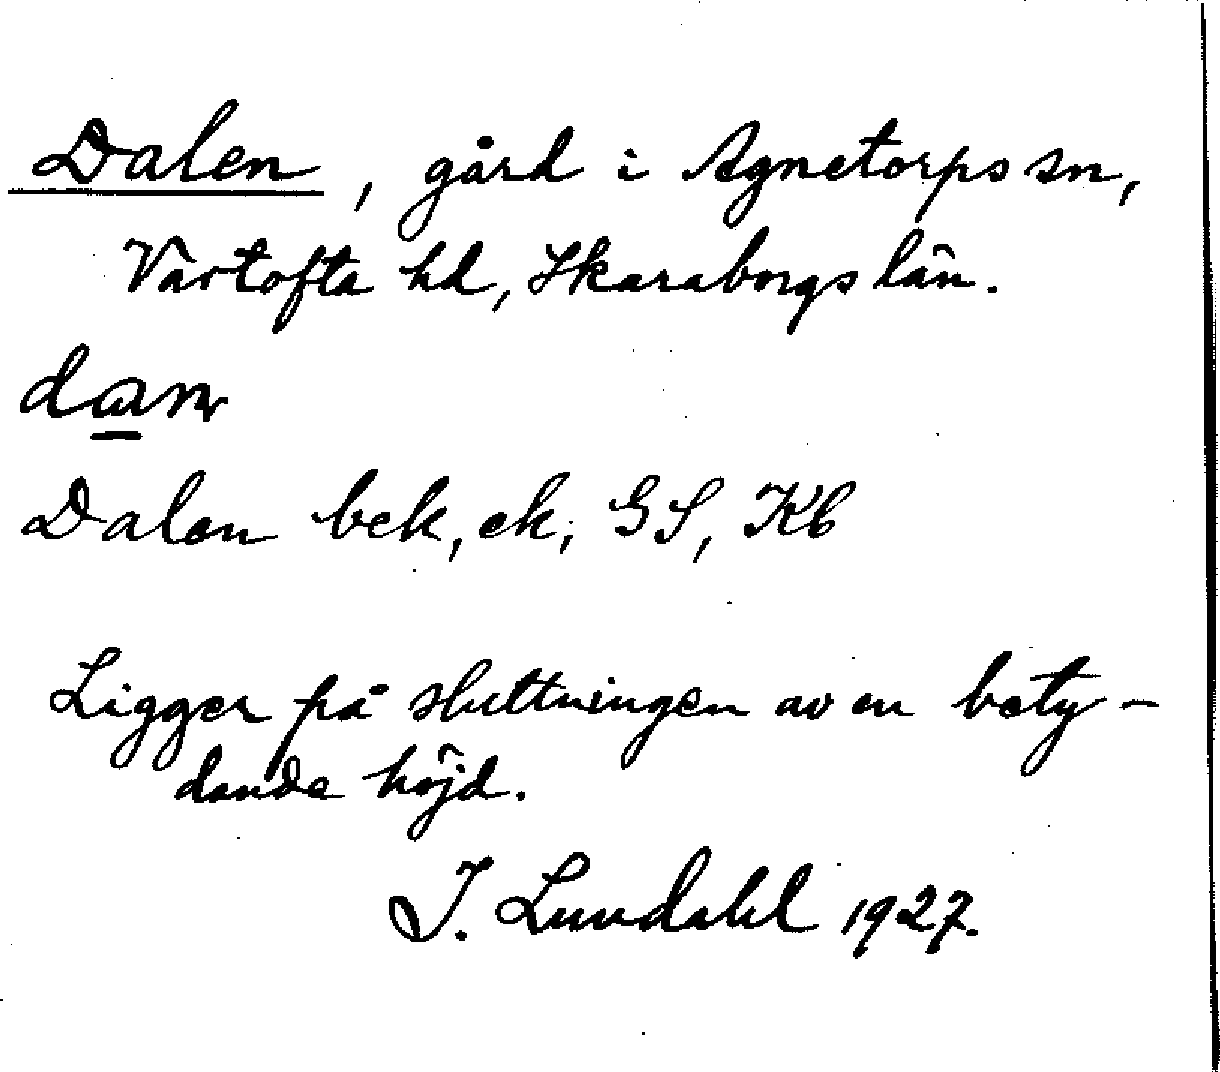 Dalen, gård i Agnetorps sn,
Vartofta hd, Skaraborgs län.
Dalen bek, ek, GS, Kb
Ligger på sluttningen av en bety-
dande höjd.
I. Lundahl 1927.